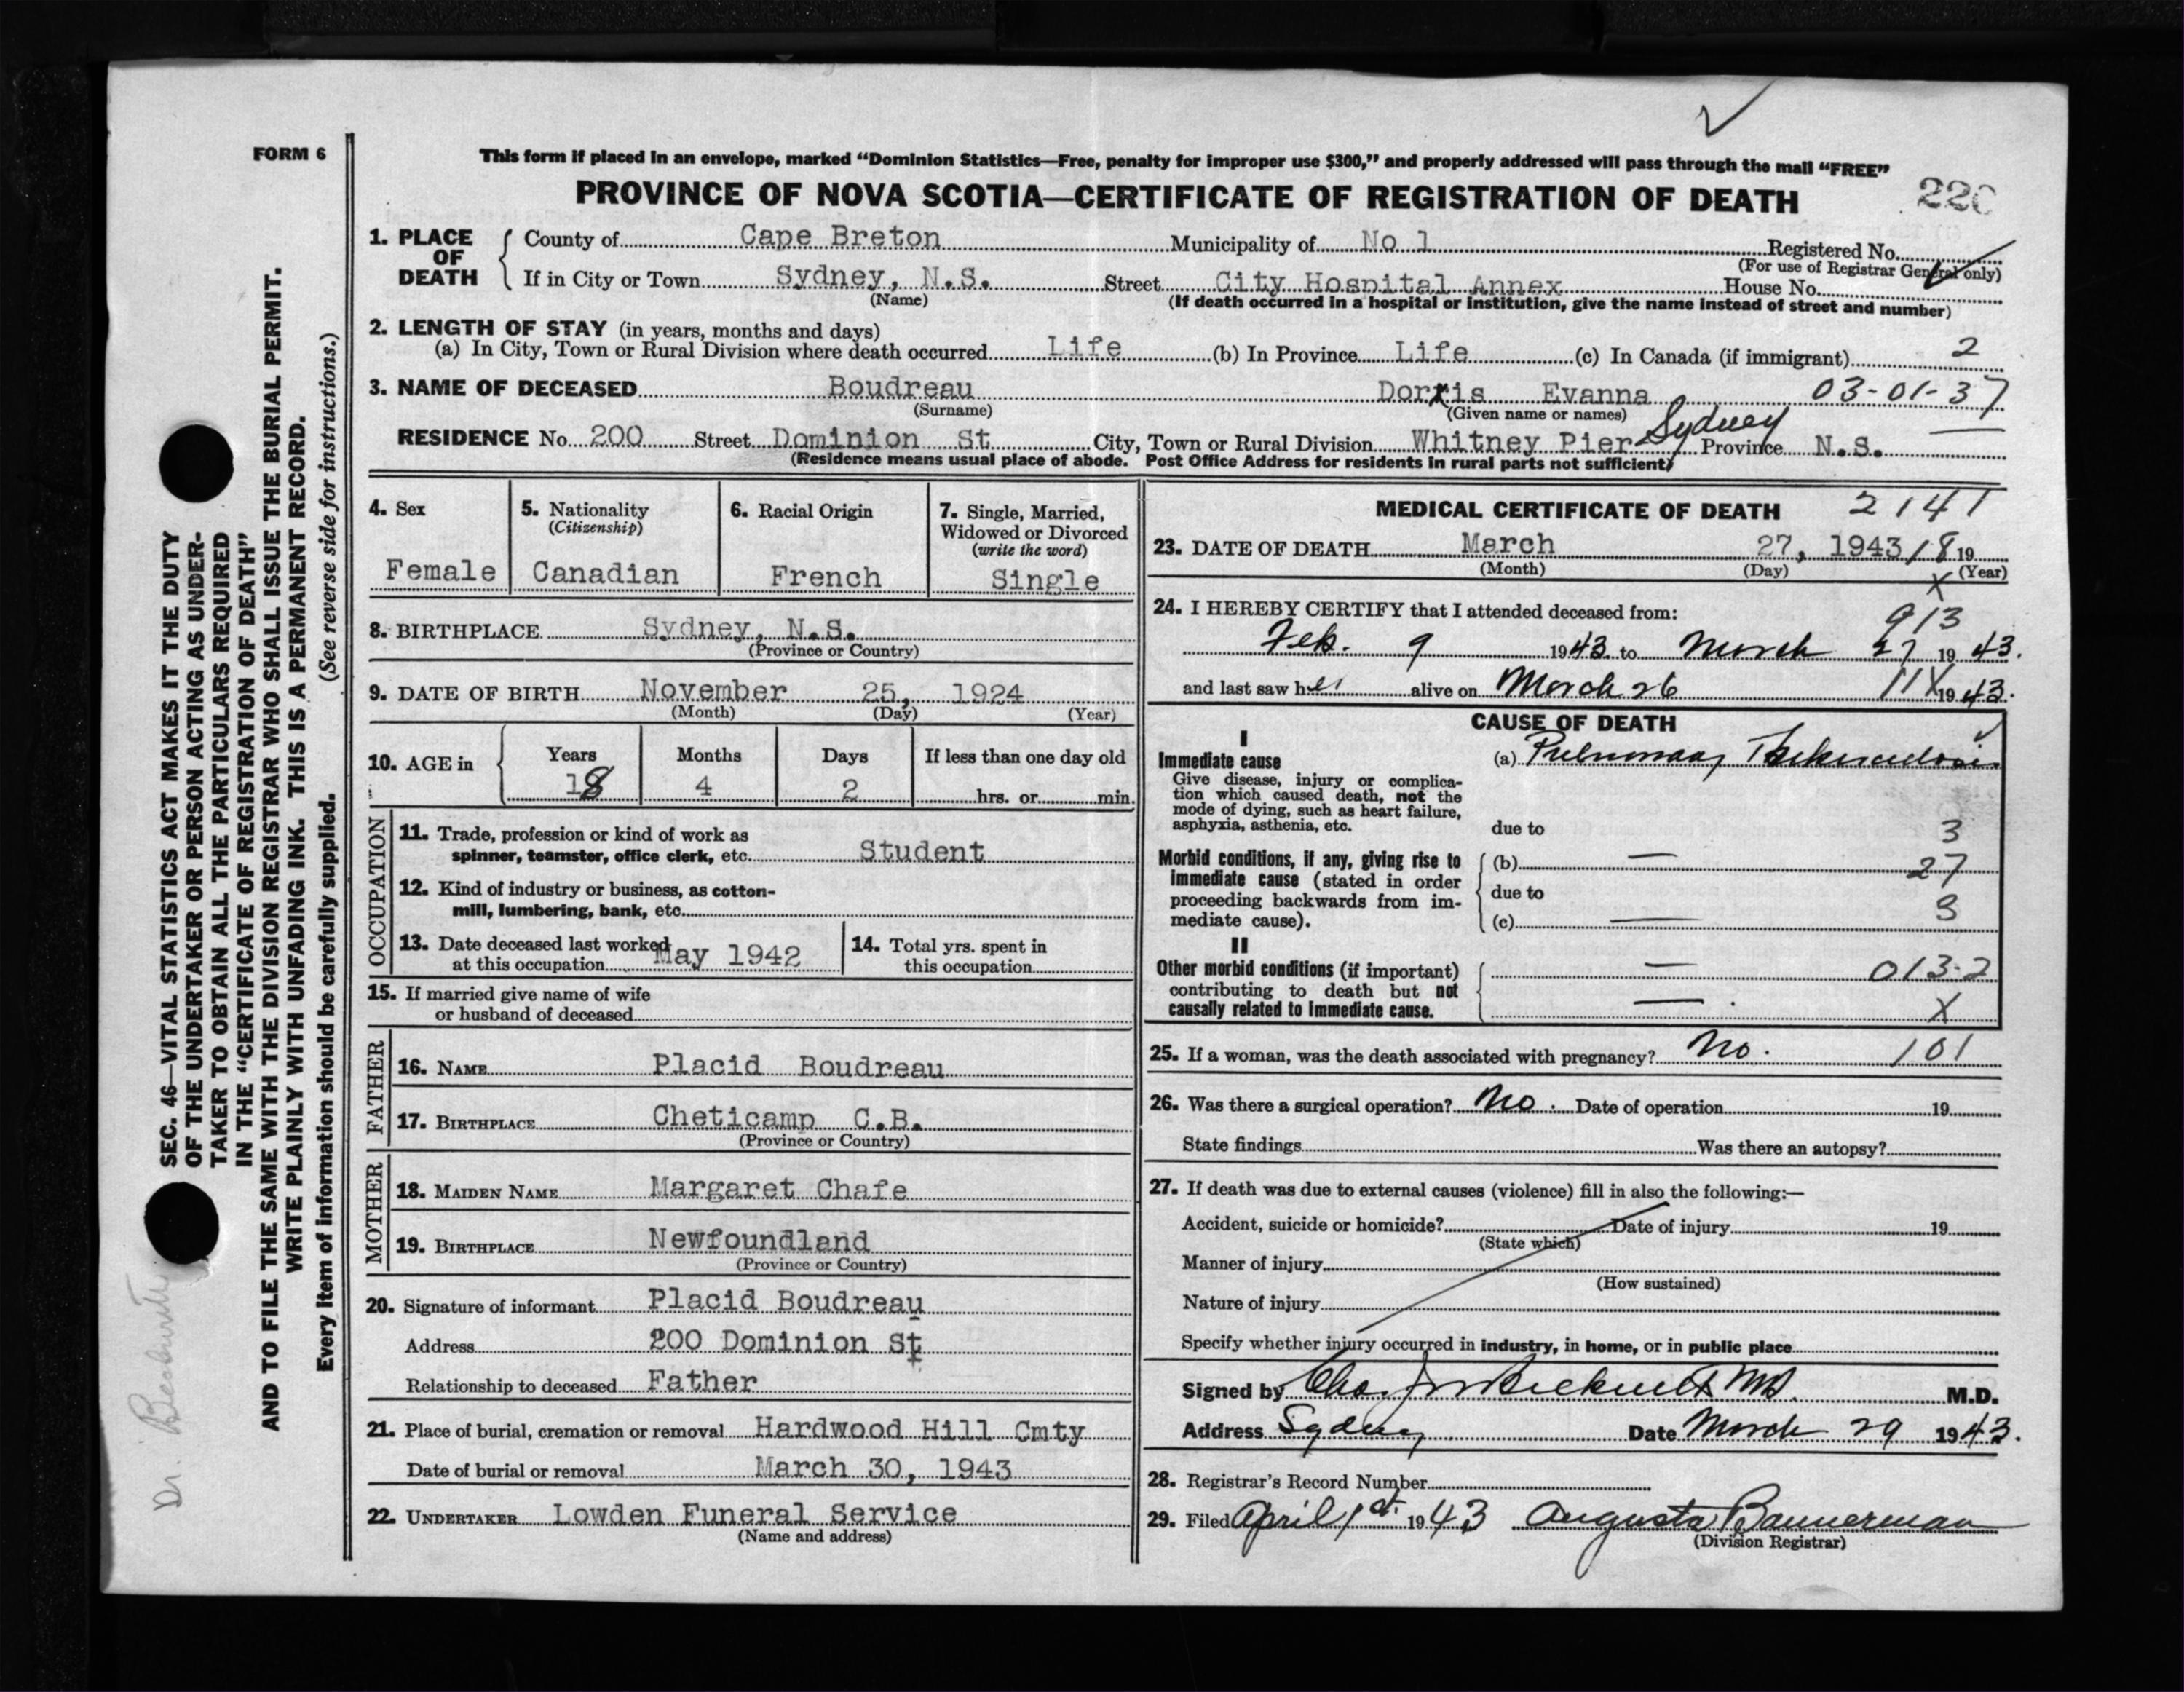 FORM 6
This form if placed in an envelope, marked “Dominion Statistics—Free, penalty for improper use $300,” and properly addressed will pass through the mail “FREE”
PROVINCE OF NOVA SCOTIA—CERTIFICATE OF REGISTRATION OF DEATH
1. PLACE OF DEATH
County of Cape Breton Municipality of No 1 Registered No.
(For use of Registrar General only)
If in City or Town Sydney, N.S. Street City Hospital Annex House No.
(Name) (If death occurred in a hospital or institution, give the name instead of street and number)
2. LENGTH OF STAY (in years, months and days)
(a) In City, Town or Rural Division where death occurred Life (b) In Province Life (c) In Canada (if immigrant) 2
3. NAME OF DECEASED Boudreau Dorris Evanna 03-01-37
(Surname) (Given name or names)
RESIDENCE No. 200 Street Dominion St City, Town or Rural Division Whitney Pier Sydney Province N.S.
(Residence means usual place of abode. Post Office Address for residents in rural parts not sufficient)
4. Sex
Female
5. Nationality
(Citizenship)
Canadian
6. Racial Origin
French
7. Single, Married,
Widowed or Divorced
(write the word)
Single
8. BIRTHPLACE Sydney, N.S.
(Province or Country)
9. DATE OF BIRTH November 25, 1924
(Month) (Day) (Year)
10. AGE in Years Months Days If less than one day old
18 4 2 hrs. or min.
OCCUPATION
11. Trade, profession or kind of work as
spinner, teamster, office clerk, etc. Student
12. Kind of industry or business, as cotton-
mill, lumbering, bank, etc.
13. Date deceased last worked
at this occupation May 1942
14. Total yrs. spent in
this occupation
15. If married give name of wife
or husband of deceased
FATHER
16. NAME Placid Boudreau
17. BIRTHPLACE Cheticamp C.B.
(Province or Country)
MOTHER
18. MAIDEN NAME Margaret Chafe
19. BIRTHPLACE Newfoundland
(Province or Country)
20. Signature of informant Placid Boudreau
Address 200 Dominion St
Relationship to deceased Father
21. Place of burial, cremation or removal Hardwood Hill Cmty
Date of burial or removal March 30, 1943
22. UNDERTAKER Lowden Funeral Service
(Name and address)
MEDICAL CERTIFICATE OF DEATH 2141
23. DATE OF DEATH March 27, 1943 18 19
(Month) (Day) (Year)
X
24. I HEREBY CERTIFY that I attended deceased from:
913
Feb. 9 1943 to March 27 1943.
and last saw her alive on March 26 11X 1943.
CAUSE OF DEATH
I
Immediate cause
Give disease, injury or complica-
tion which caused death, not the
mode of dying, such as heart failure,
asphyxia, asthenia, etc.
(a) Pulmonary Tuberculosis
due to 3
Morbid conditions, if any, giving rise to
immediate cause (stated in order
proceeding backwards from im-
mediate cause).
(b) — 27
due to
(c) — 3
II
Other morbid conditions (if important)
contributing to death but not
causally related to immediate cause.
— 013-2
— X
25. If a woman, was the death associated with pregnancy? No. 101
26. Was there a surgical operation? No. Date of operation 19
State findings Was there an autopsy?
27. If death was due to external causes (violence) fill in also the following:—
Accident, suicide or homicide? Date of injury 19
(State which)
Manner of injury
(How sustained)
Nature of injury
Specify whether injury occurred in industry, in home, or in public place
Signed by M.D.
Address Sydney Date March 29 1943.
28. Registrar's Record Number
29. Filed April 1st 1943 Augusta Bannerman
(Division Registrar)
SEC. 46—VITAL STATISTICS ACT MAKES IT THE DUTY
OF THE UNDERTAKER OR PERSON ACTING AS UNDER-
TAKER TO OBTAIN ALL THE PARTICULARS REQUIRED
IN THE “CERTIFICATE OF REGISTRATION OF DEATH”
AND TO FILE THE SAME WITH THE DIVISION REGISTRAR WHO SHALL ISSUE THE BURIAL PERMIT.
WRITE PLAINLY WITH UNFADING INK. THIS IS A PERMANENT RECORD.
Every item of information should be carefully supplied. (See reverse side for instructions.)
Dr.